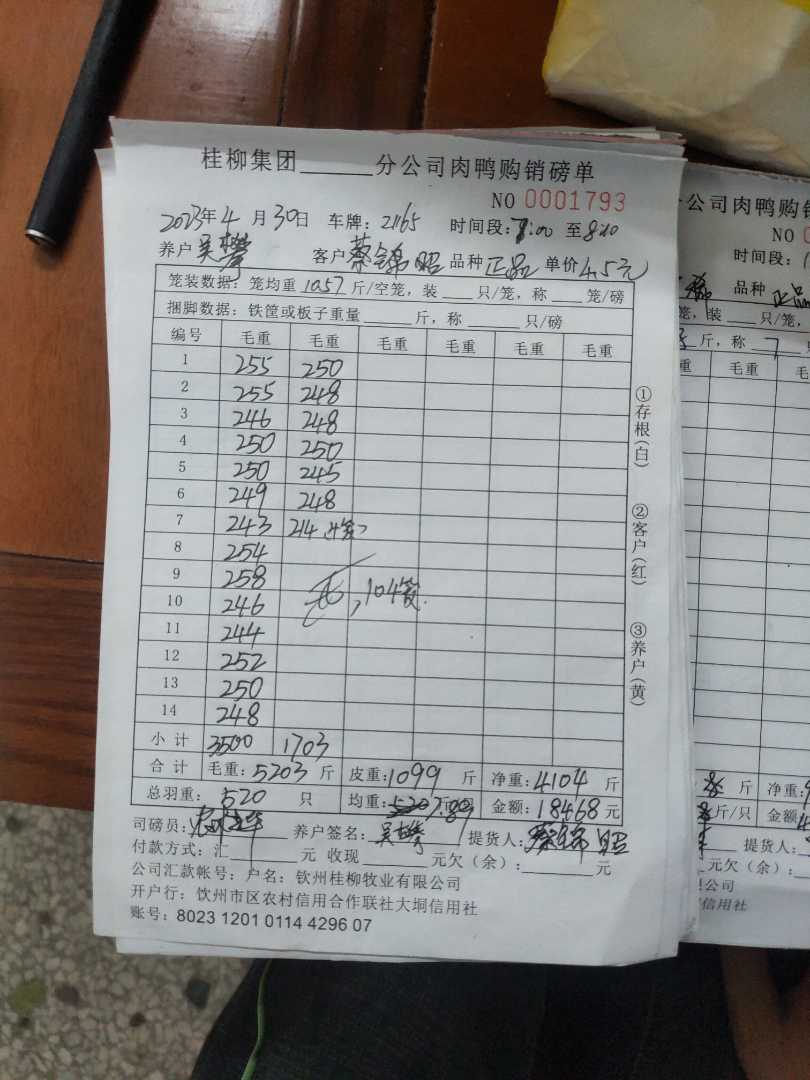 桂柳集团______分公司肉鸭购销磅单
NO 0001793
2023年4月30日 车牌：21165 时间段：7:00 至8:20
养户 吴攀 客户 蔡锦昭 品种 正品 单价 4.5元
笼装数据：笼均重 10.57 斤/空笼，装 ___ 只/笼，称 ___ 笼/磅
捆脚数据：铁筐或板子重量______斤，称______只/磅
编号 毛重 毛重 毛重 毛重 毛重 毛重
1 255 250
2 255 248
3 246 248
4 250 250
5 250 245
6 249 248
7 243 214
8 254
9 258
10 246 104笼
11 244
12 252
13 250
14 248
小计 3500 1703
合计 毛重：5203 斤 皮重：1099 斤 净重：4104 斤
总羽重：520 只 均重：7.89 金额：18468 元
司磅员： 养户签名：吴攀 提货人：蔡锦昭
付款方式：汇______元 收现______元欠（余）：______元
公司汇款帐号：户名：钦州桂柳牧业有限公司
开户行：钦州市区农村信用合作联社大垌信用社
账号：8023 1201 0114 4296 07
①存根（白）
②客户（红）
③养户（黄）
分公司肉鸭购销
NO 0
时间段：
品种 正品
笼，装 ___ 只/笼，
斤，称 7
重 毛重 毛
斤 净重：
斤/只 金额
提货人：
元欠（余）：
限公司
信用社